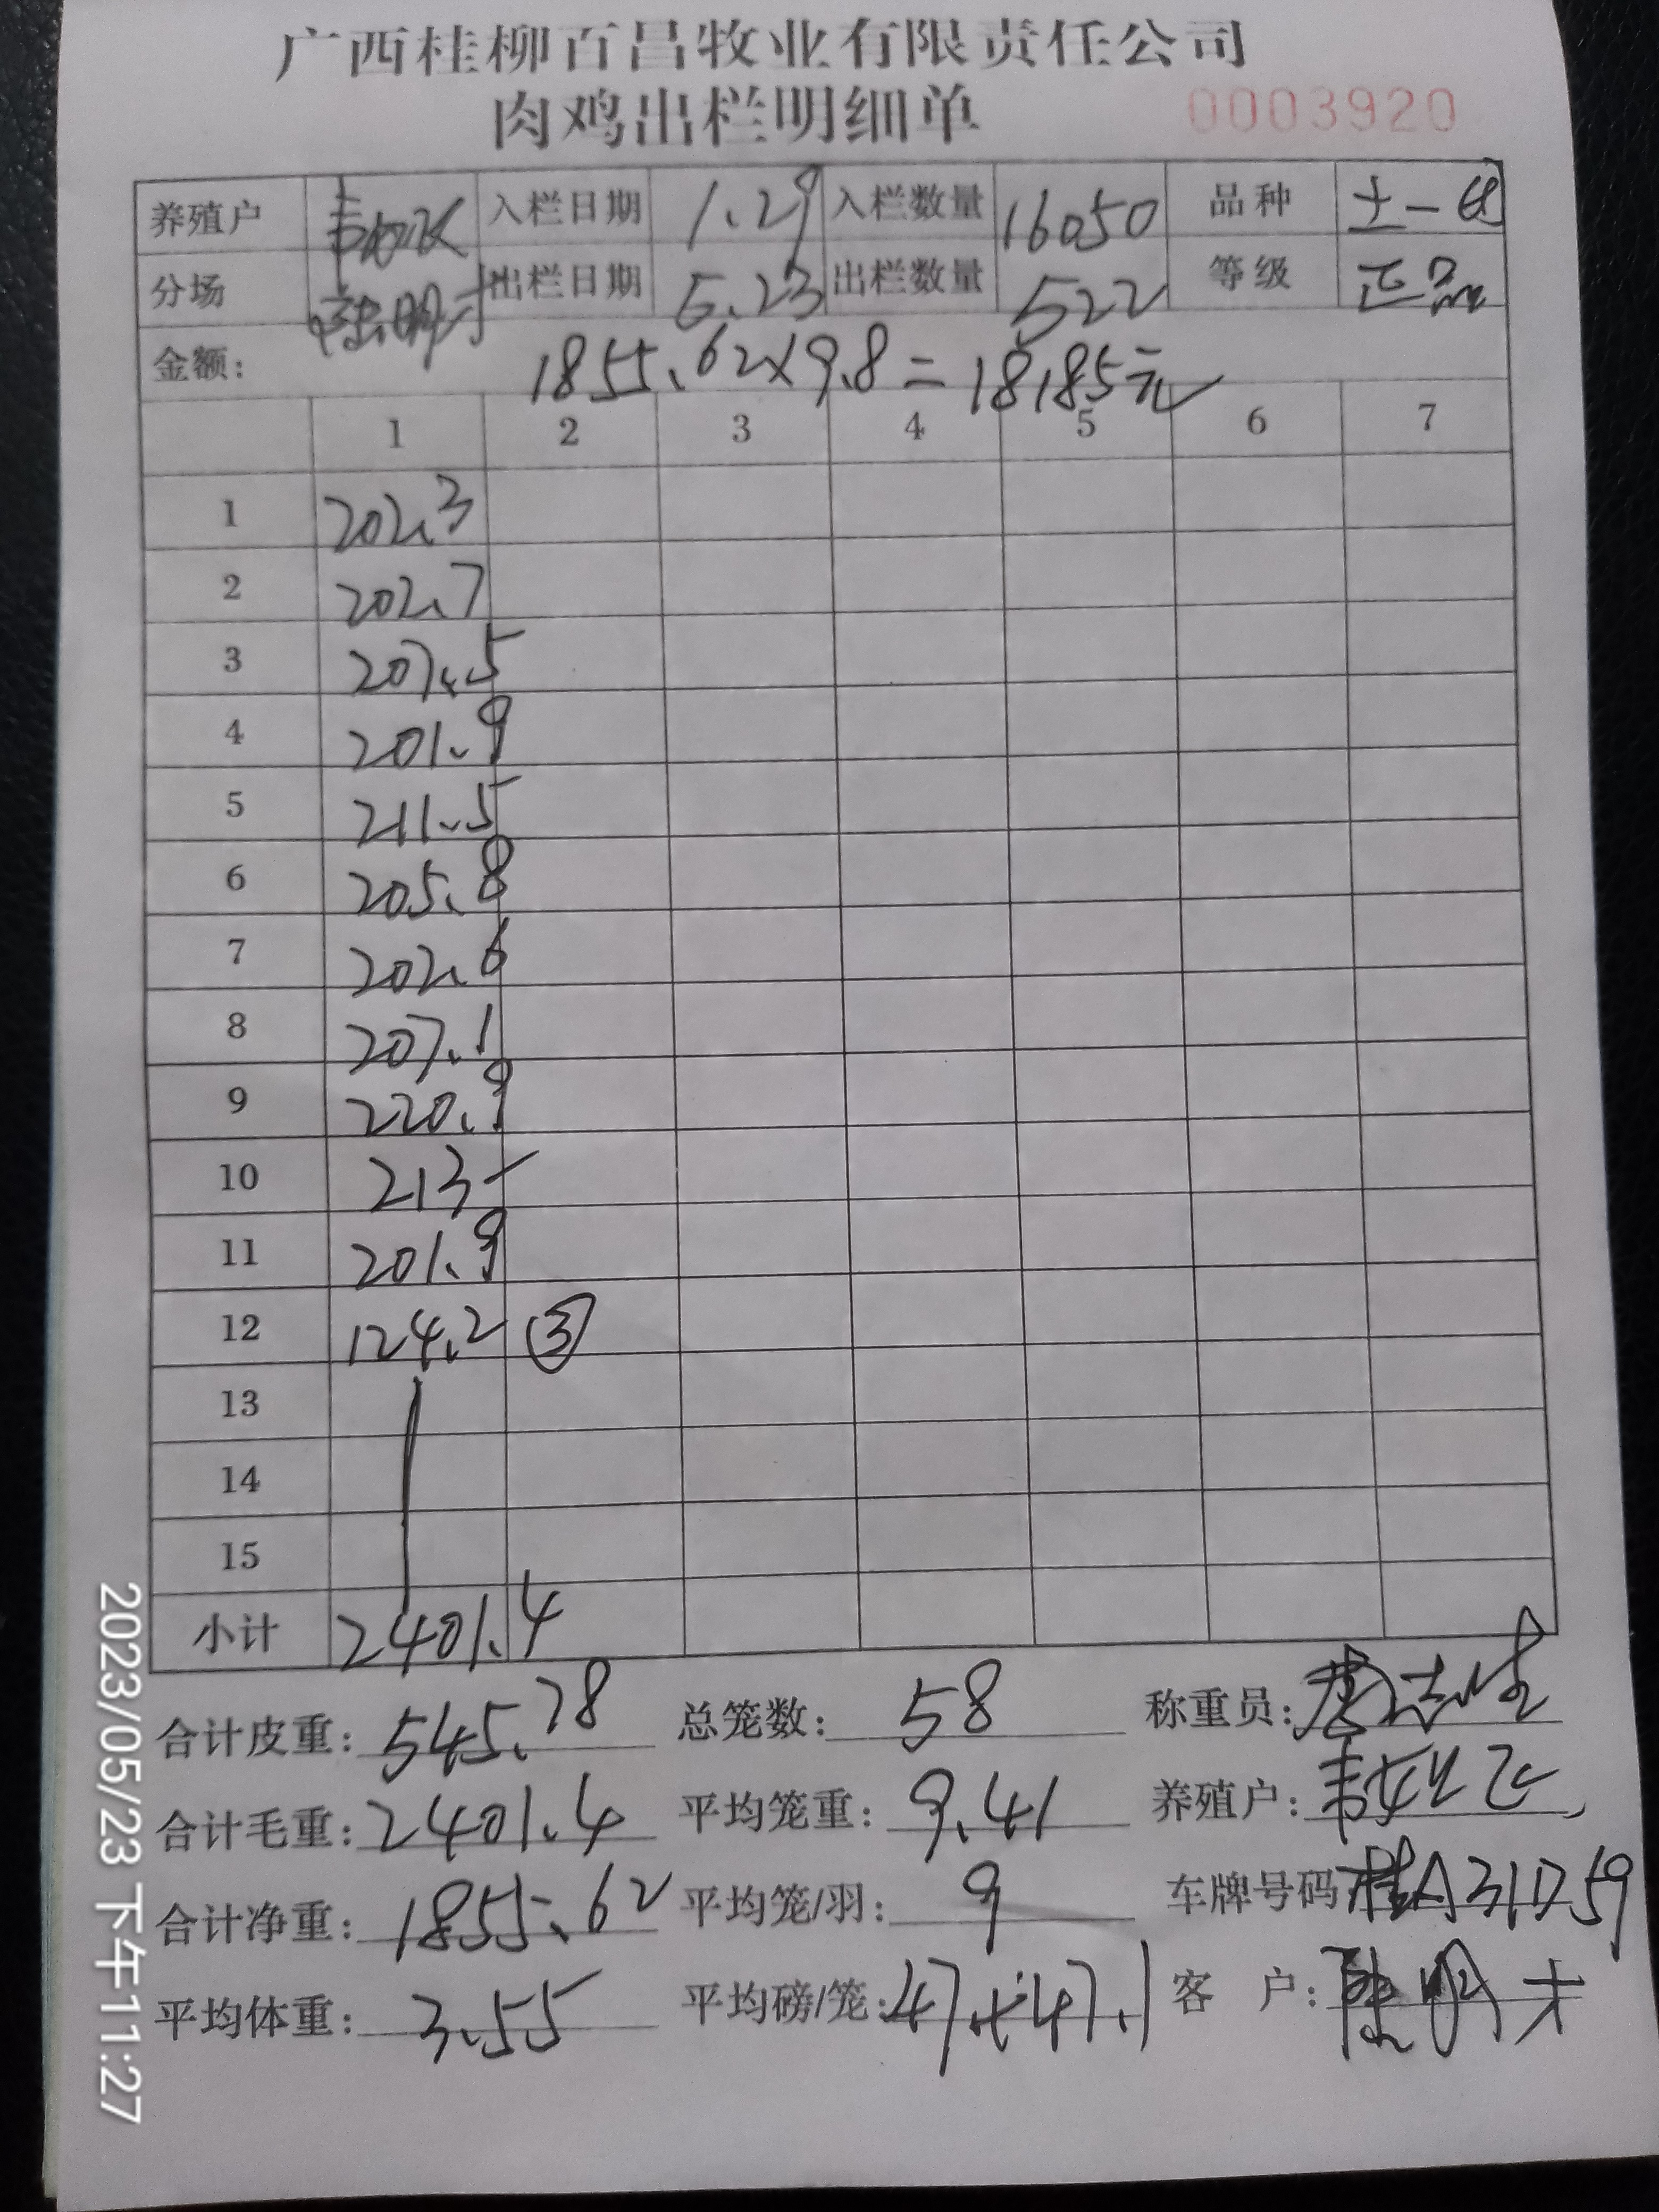 广西桂柳百昌牧业有限责任公司
肉鸡出栏明细单 0003920
养殖户 入栏日期 1.29 入栏数量 16050 品种 土一
分场 陆明才 出栏日期 5.23 出栏数量 522 等级 正品
金额: 1855.62×9.8=18185元
1 2 3 4 5 6 7
1 202.3
2 202.7
3 207.5
4 201.9
5 211.5
6 205.8
7 202.6
8 207.1
9 220.9
10 213-
11 201.9
12 124.2 ③
13
14
15
小计 2401.4
合计皮重: 545.78 总笼数: 58 称重员:
合计毛重: 2401.4 平均笼重: 9.41 养殖户:
合计净重: 1855.62 平均笼/羽: 9 车牌号码 桂A31D59
平均体重: 3.55 平均磅/笼: 客 户: 陆明才
2023/05/23 下午11:27